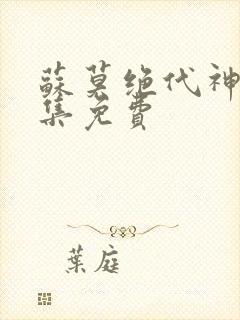 蘇莫绝代神
集免費
葉庭